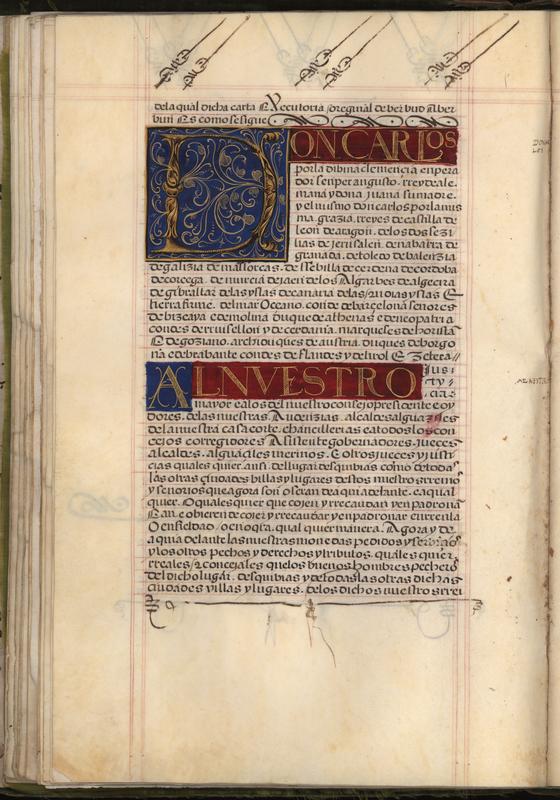 dela qual dicha carta Executoria foreginal de berbud Alber
buii Es como se sigue
DON CARLOS
porla dibina clemencia enpera
dor senper augusto. rrey de ale
mana y dona juana su madre.
y el mismo don carlos por la mis
ma. grazia. rreyes de castilla de
leon de aragon. delos dos sezi
lias de jerusalen. de nabarra de
granada. de toledo de balenzia
de galizia de mallorcas. de ssebilla de cerdena de cordoba
de corcega. de murcia de jaen delos Algarbes de algezira
de gibraltar delas yslas de canaria delas yndias yslas E
tierra firme. del mar Oceano. conde de barcelona senores
de bizcaya e de molina duque de athenas e de neopatria
condes de rruisellon y de cerdania. marqueses de horista
E de goziano. archiduques de austria. duques de borgo
na e de brabante condes de flandes y de tirol E Zetera
AL NVESTRO
jus
ty
cia
mayor ealos del nuestro consejo presidente e oy
dores. delas nuestras. Audenzias. alcaldes alguaziles
dela nuestra casa e corte. chancillerias ea todos los con
cejos corregidores Asistente gobernadores. jueces
alcaldes. alguaciles merinos. E otros jueces y justi
cias quales quier. ansi. del lugar desquibias como de todas
las otras ciudades billas y lugares destos nuestro srreino
y senorios que agora son o seran de aqui adelante. ea qual
quier. O quales quier que cojen y rrecaudan y enpadrona
Ean. e obieren de cojer y rrecaudar y enpadronar en rrenta
O en fieldad o en otra. qual quier manera. Agora y de
aqui adelante las nuestras monedas pedidos y serbicios
y los otros pechos y derechos y tributos. quales quier.
rreales y concejales que los buenos hombres pechero
del dicho lugar. desquibias y de todas las otras dichas
ciudades villas y lugares. delos dichos nuestro srrei